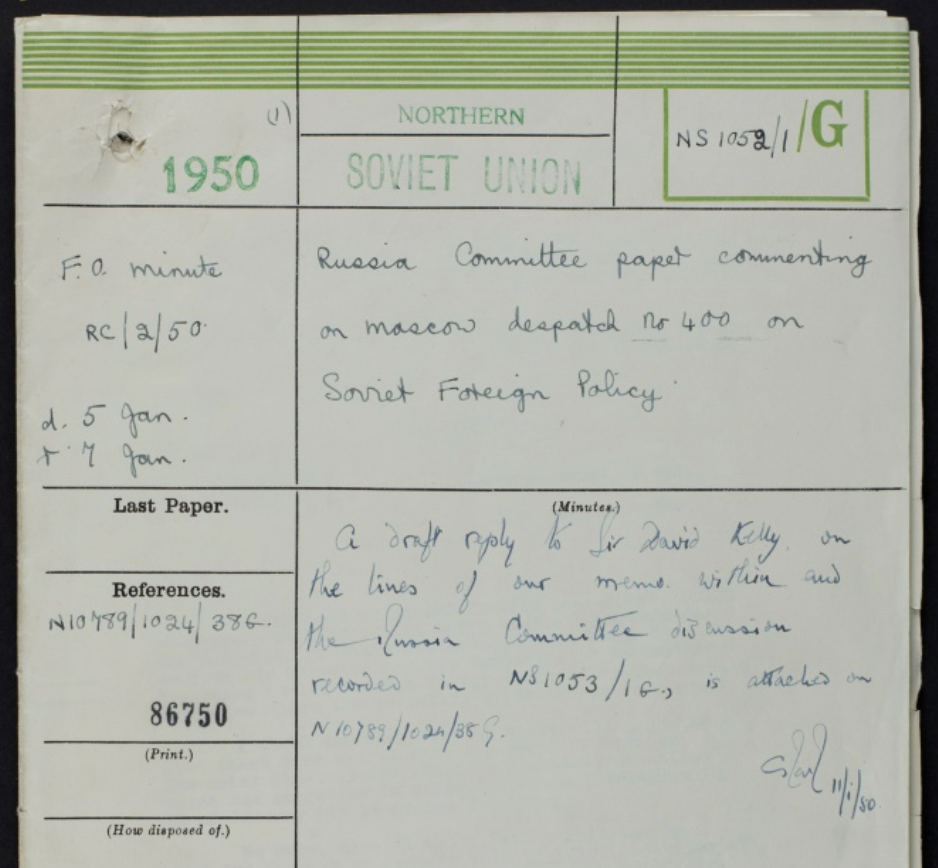 (1)
NORTHERN
1950
SOVIET UNION
NS 1052/1/G
F.O. minute
RC/2/50.
d. 5 Jan.
r 7 Jan.
Russia Committee paper commenting
on Moscow despatch no 400 on
Soviet Foreign Policy.
Last Paper.
References.
N10789/1024/38G.
86750
(Print.)
(How disposed of.)
(Minutes.)
A draft reply to Sir David Kelly, on
the lines of our memo. within and
the Russia Committee discussion
recorded in NS1053/1G., is attached on
N10789/1024/38G.
11/1/50.